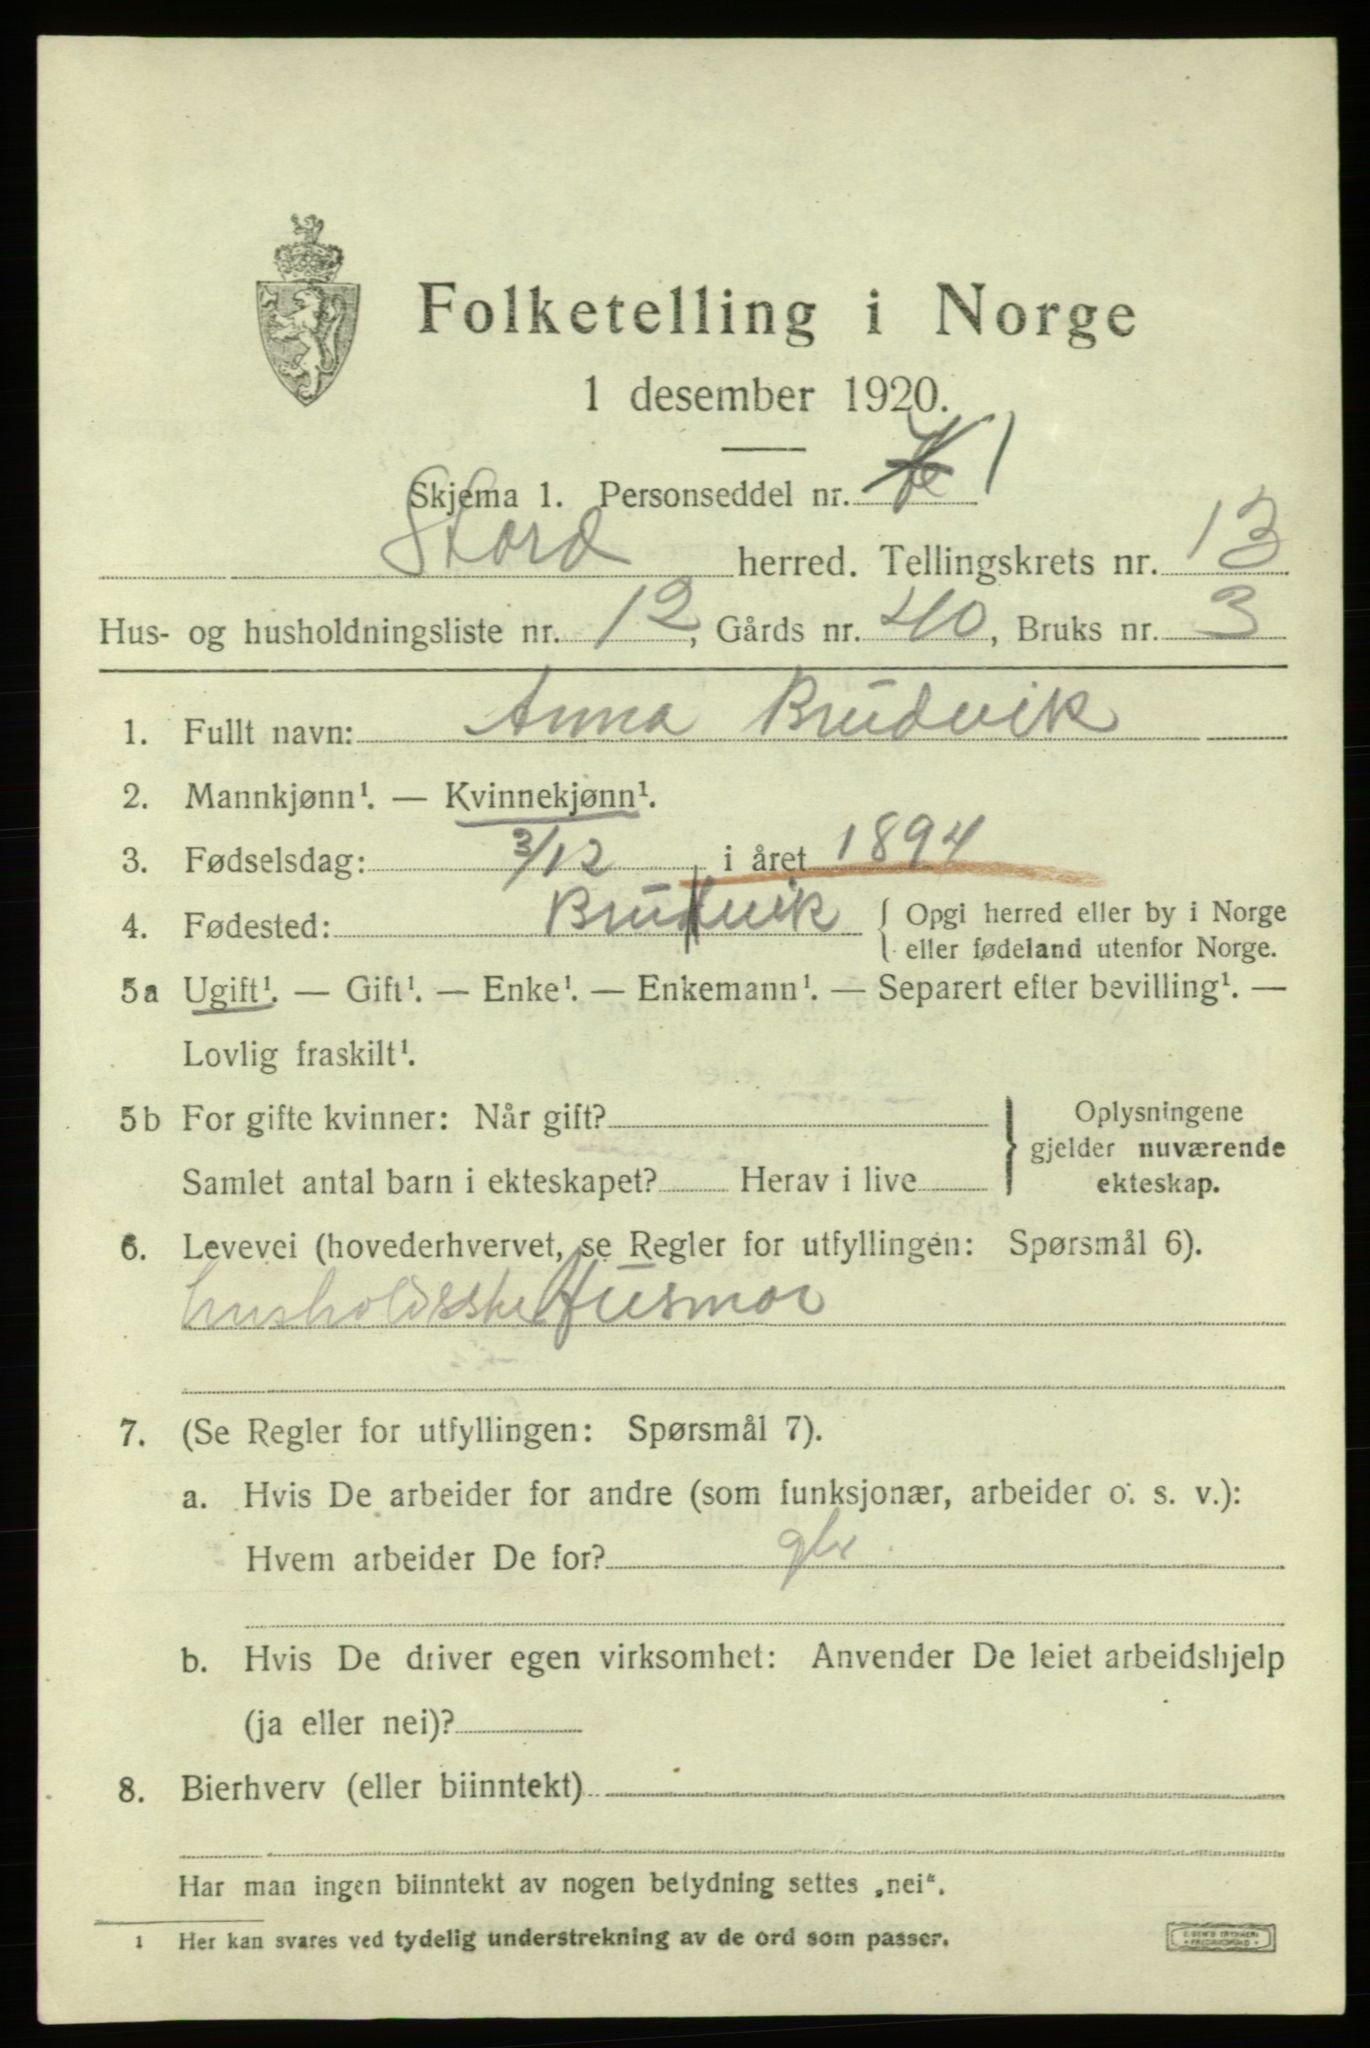 Folketelling i Norge
1 desember 1920.
Skjema 1. Personseddel nr. 1
Stord herred. Tellingskrets nr. 13
Hus- og husholdningsliste nr. 12, Gårds nr. 40, Bruks nr. 3
1. Fullt navn: Anna Brudvik
2. Mannkjønn¹. — Kvinnekjønn¹.
3. Fødselsdag: 3/12 i året 1894
4. Fødested: Brudvik { Opgi herred eller by i Norge
eller fødeland utenfor Norge.
5a Ugift¹. — Gift¹. — Enke¹. — Enkemann¹. — Separert efter bevilling¹. —
Lovlig fraskilt¹.
5b For gifte kvinner: Når gift? } Oplysningene
gjelder nuværende
Samlet antal barn i ekteskapet? Herav i live ekteskap.
6. Levevei (hovederhvervet, se Regler for utfyllingen: Spørsmål 6).
Husmor
7. (Se Regler for utfyllingen: Spørsmål 7).
a. Hvis De arbeider for andre (som funksjonær, arbeider o. s. v.):
Hvem arbeider De for?
b. Hvis De driver egen virksomhet: Anvender De leiet arbeidshjelp
(ja eller nei)?
8. Bierhverv (eller biinntekt)
Har man ingen biinntekt av nogen betydning settes „nei“.
1 Her kan svares ved tydelig understrekning av de ord som passer.